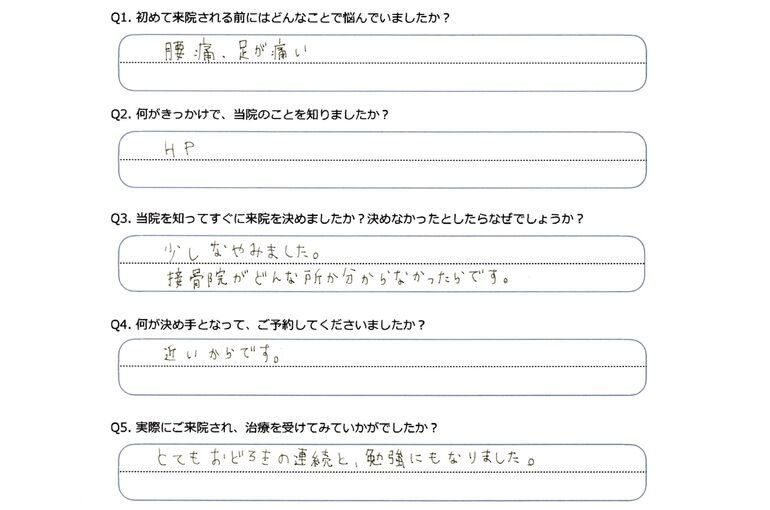 Q1. 初めて来院される前にはどんなことで悩んでいましたか？
腰痛、足が痛い
Q2. 何がきっかけで、当院のことを知りましたか？
HP
Q3. 当院を知ってすぐに来院を決めましたか？決めなかったとしたらなぜでしょうか？
少しなやみました。
接骨院がどんな所か分からなかったらです。
Q4. 何が決め手となって、ご予約してくださいましたか？
近いからです。
Q5. 実際にご来院され、治療を受けてみていかがでしたか？
とてもおどろきの連続と、勉強にもなりました。